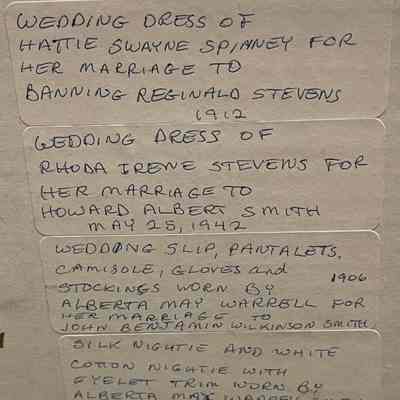 WEDDING DRESS OF
HATTIE SWAYNE SPINNEY FOR
HER MARRIAGE TO
BANNING REGINALD STEVENS
1912
WEDDING DRESS OF
RHODA IRENE STEVENS FOR
HER MARRIAGE TO
HOWARD ALBERT SMITH
MAY 25, 1942
WEDDING SLIP, PANTALETS,
CAMISOLE, GLOVES and 1906
STOCKINGS WORN BY
ALBERTA MAY WARRELL FOR
HER MARRIAGE TO
JOHN BENJAMIN WILKINSON SMITH
SILK NIGHTIE AND WHITE
COTTON NIGHTIE WITH
EYELET TRIM WORN BY
ALBERTA MAY